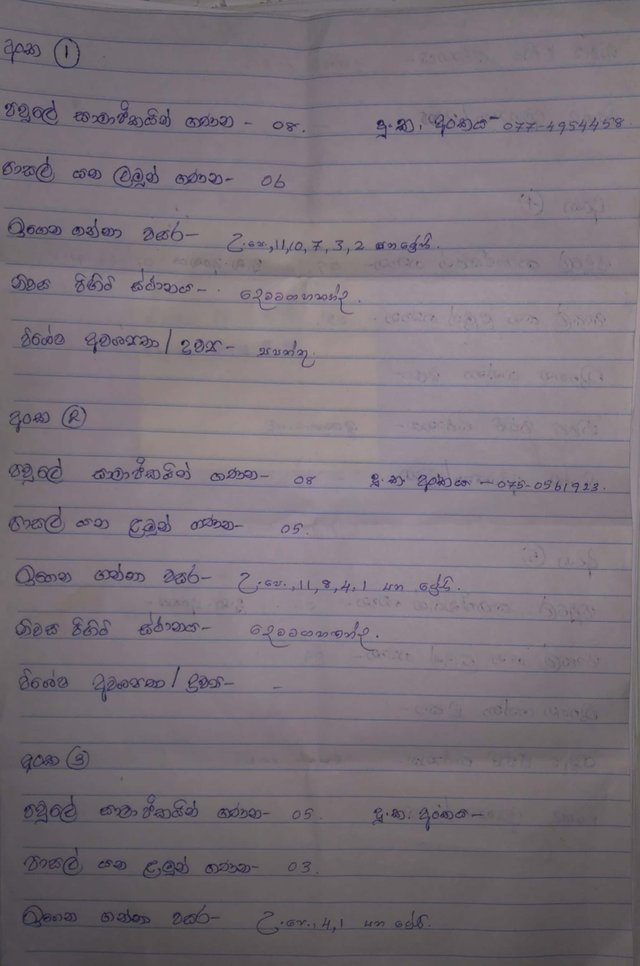 අංක ①
පවුලේ සාමාජිකයින් ගණන - 08. දු.ක. අංකය - 077-4954458
පාසල් යන ළමුන් ගණන- 06
ඉගෙන ගන්නා වසර- උ.පෙ., 11, 10, 7, 3, 2 යන ශ්‍රේණි.
නිවස පිහිටි ස්ථානය-
විශේෂ අවශ්‍යතා / ද්‍රව්‍ය - සපත්තු.
අංක ②
පවුලේ සාමාජිකයින් ගණන- 08 දු.ක. අංකය - 075-0561923.
පාසල් යන ළමුන් ගණන- 05.
ඉගෙන ගන්නා වසර- උ.පෙ., 11, 8, 4, 1 යන ශ්‍රේණි.
නිවස පිහිටි ස්ථානය-
විශේෂ අවශ්‍යතා / ද්‍රව්‍ය- -
අංක ③
පවුලේ සාමාජිකයින් ගණන- 05. දු.ක. අංකය-
පාසල් යන ළමුන් ගණන- 03.
ඉගෙන ගන්නා වසර- උ.පෙ., 4, 1 යන ශ්‍රේණි.